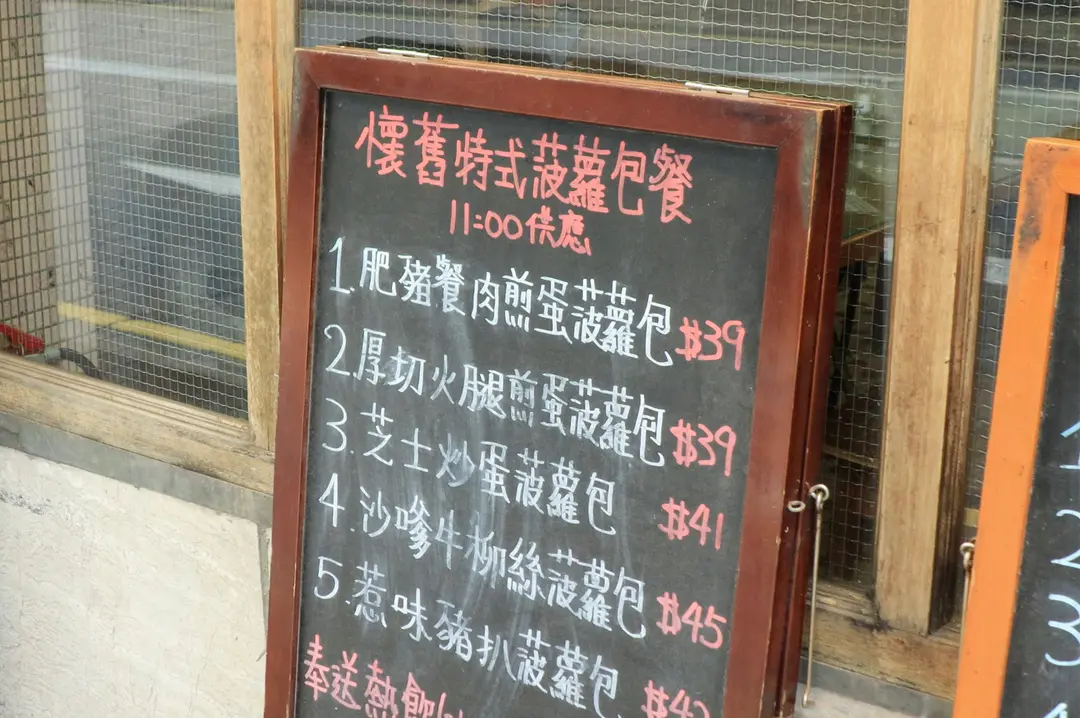 懷舊特式菠蘿包餐
11:00供應
1.肥豬餐肉煎蛋菠蘿包 $39
2.厚切火腿煎蛋菠蘿包 $39
3.芝士炒蛋菠蘿包 $41
4.沙嗲牛柳絲菠蘿包 $45
5.惹味豬扒菠蘿包
奉送熱飲
2
3